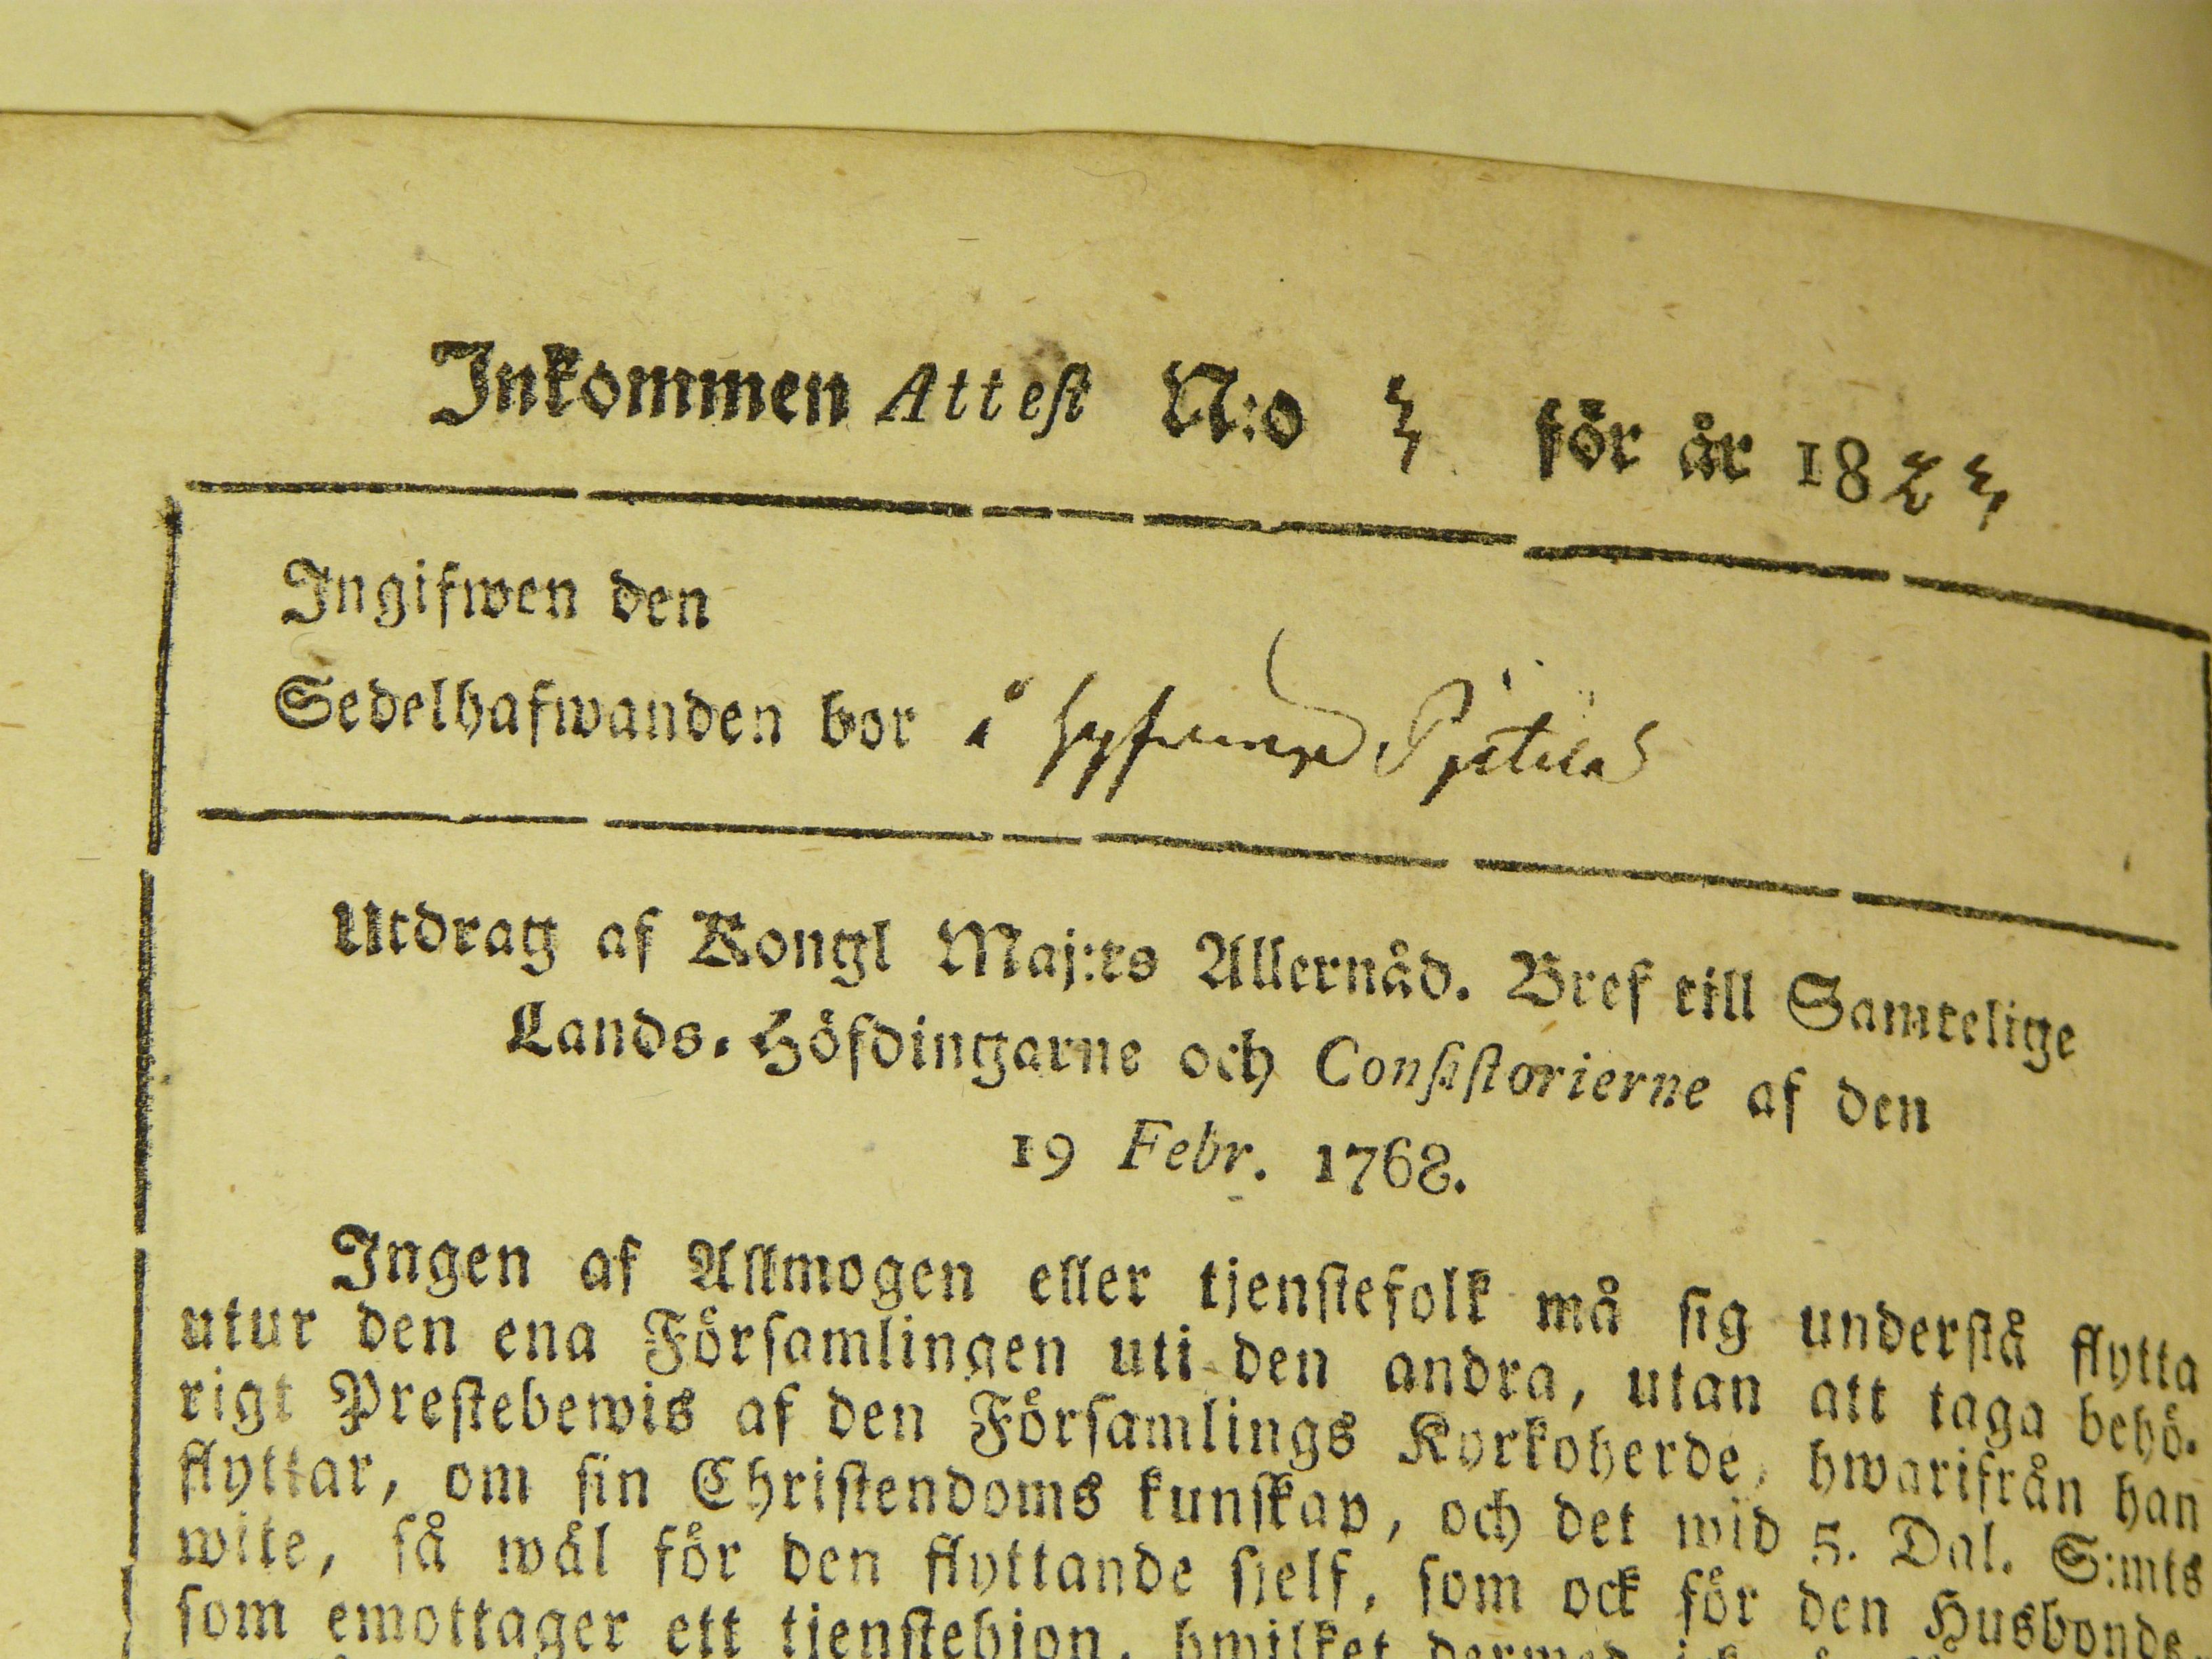 Inkommen Attest N:o 3 för år 1823
Ingifwen den
Sedelhafwanden bor å
Utdrag af Kongl Maj:ts Allernåd. Bref till Samtelige
Lands-Höfdingarne och Consistorierne af den
19 Febr. 1768.
Ingen af Allmogen eller tjenstefolk må sig understå flytta
utur den ena Församlingen uti den andra, utan att taga behö-
rigt Prestebewis af den Församlings Kyrkoherde, hwarifrån han
flyttar, om sin Christendoms kunskap, och det wid 5. Dal. S:mts
wite, så wäl för den flyttande sjelf, som ock för den Husbonde
som emottager ett tjenstehjon, hwilket